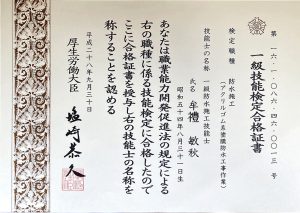 第一六-一-〇八六-四六-〇〇一三号
一級技能検定合格証書
検定職種 防水施工
(アクリルゴム系塗膜防水工事作業)
技能士の名称 一級防水施工技能士
氏名 牟禮 敏秋
昭和五十四年八月三十一日生
あなたは職業能力開発促進法の規定による
右の職種に係る技能検定に合格したので
ここに合格証書を授与し右の技能士の名称を
称することを認める
平成二十八年九月三十日
厚生労働大臣 塩崎恭久